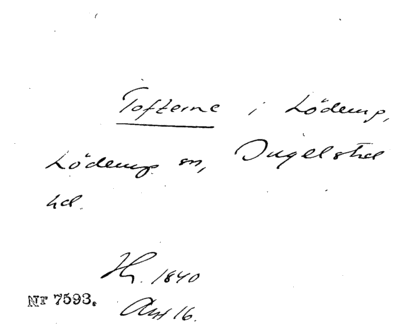 Tofterne i Löderup,
Löderup sn, Ingelstad
hd.
Hr. 1840
Nr 7593.
Ant 16.